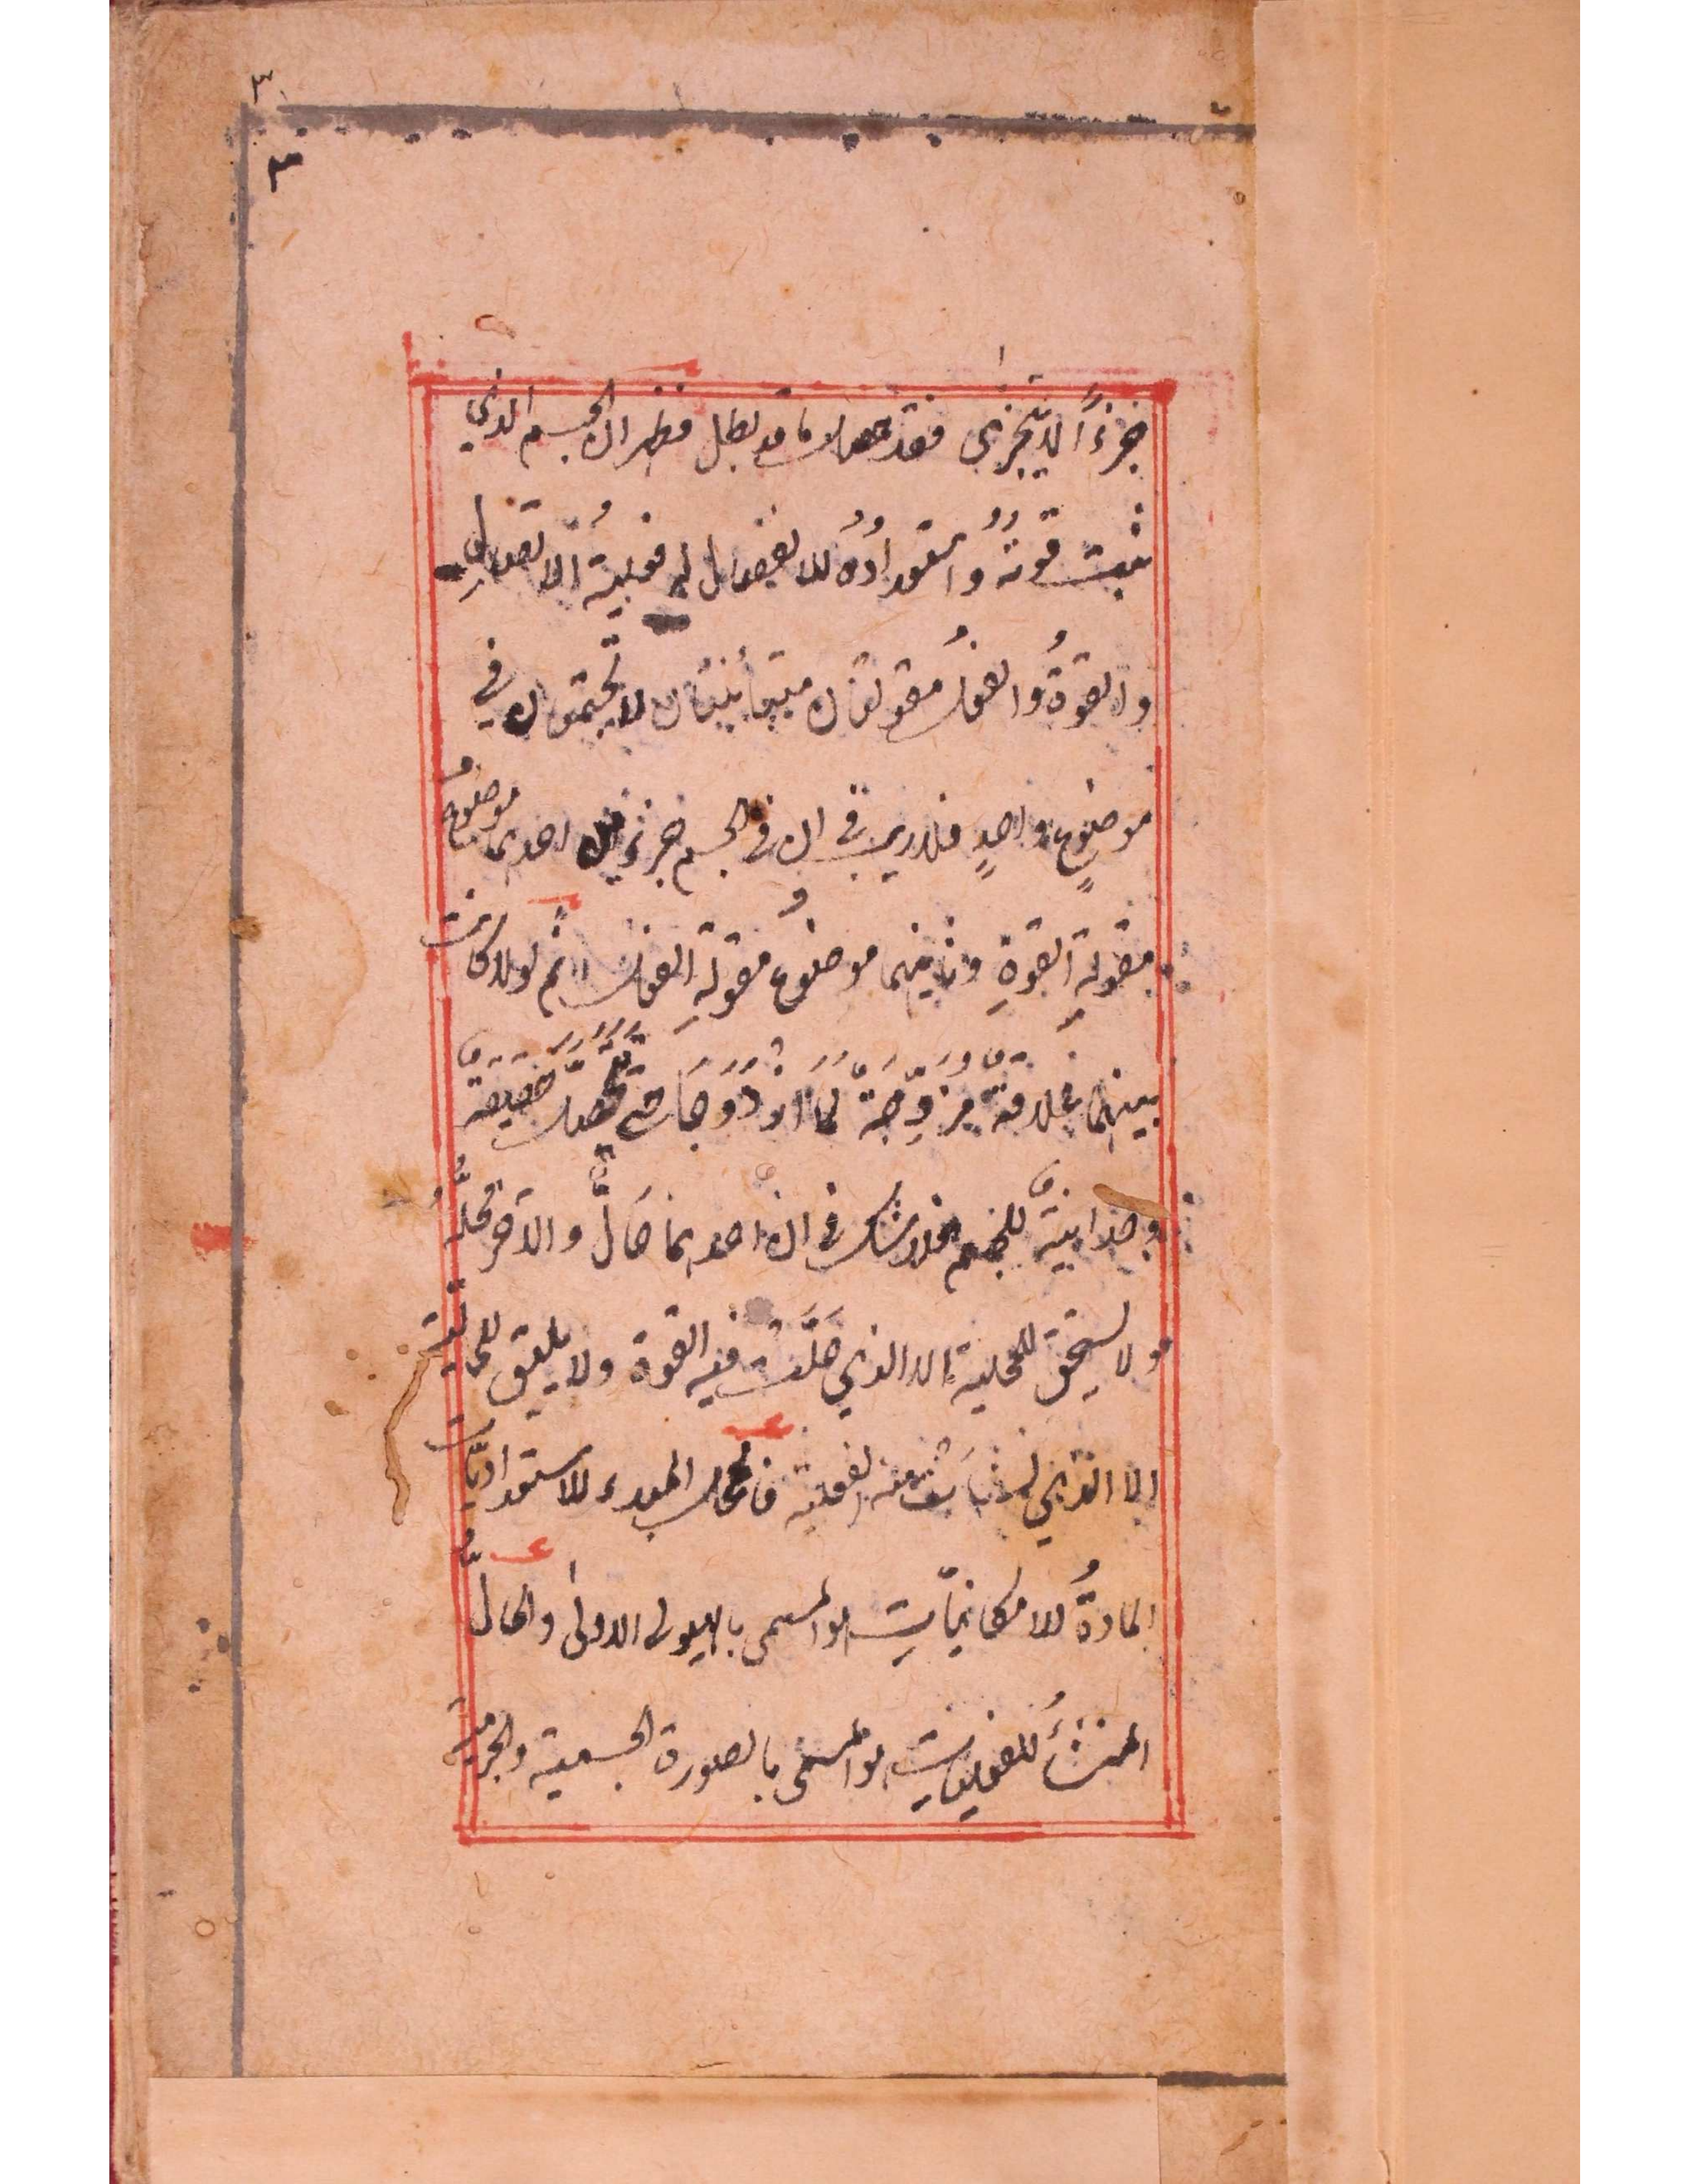 ٣
٣
جزءًا لا يتجزى فقد حصل ما قد بطل فظهر ان الجسم الذي
ثبت قوتهُ واستعدادُهُ للانفصال له فعليةُ الاتصال
والقوةُ والفعلُ مقولتان متبائنتان لا تجتمعان في
موضوعٍ واحدٍ فلا ريب في ان في الجسم جزئين احدهما موضوعُ
مقولةِ القوةِ وثانيهما موضوعُ مقولةِ الفعل ثم لو لا كانت
بينهما علاقة مزوّجة لما ازدوجا حتى تحصل حقيقة
وحدانية للجسم فلا شك في ان احدهما حالٌّ والآخر محلٌّ
ولا يستحق للمحلية الا الذي حَلَّت فيه القوة ولا يليق للحالية
الا الذي نشأت منه الفعلية فالمحل المبدء للاستعداديّات
المادةُ للامكانيّات هو المسمى بالهيولى الاولى والحالّ
المنشأُ للفعليات هو المسمى بالصورة الجسمية والجرمية